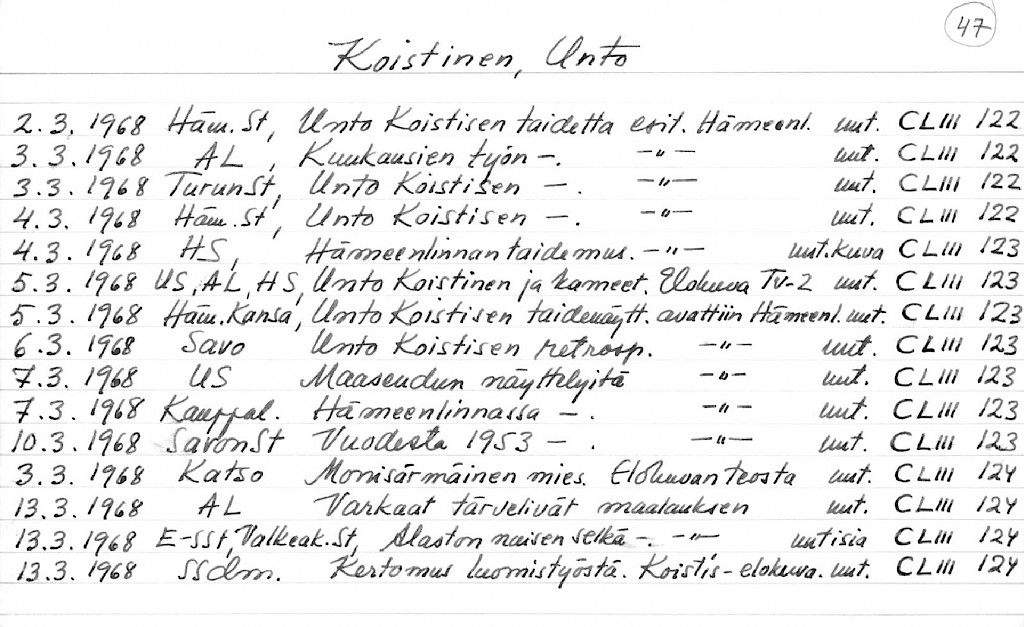 47
Koistinen, Unto
2.3.1968 Häm.St, Unto Koistisen taidetta esit. Hämeenl. uut. CLIII 122
3.3.1968 AL, Kuukausien työn -. -"- uut. CLIII 122
3.3.1968 TurunSt, Unto Koistisen -. -"- uut. CLIII 122
4.3.1968 Häm.St, Unto Koistisen -. -"- uut. CLIII 122
4.3.1968 HS, Hämeenlinnan taidemus. -"- uut.kuva CLIII 123
5.3.1968 US, AL, HS, Unto Koistinen ja kameet. Elokuva TV-2 uut. CLIII 123
5.3.1968 Häm.Kansa, Unto Koistisen taidenäytt. avattiin Hämeenl. uut. CLIII 123
6.3.1968 Savo Unto Koistisen retrosp. -"- uut. CLIII 123
7.3.1968 US Maaseudun näyttelyitä -"- uut. CLIII 123
7.3.1968 Kauppal. Hämeenlinnassa -. -"- uut. CLIII 123
10.3.1968 SavonSt Vuodesta 1953 -. -"- uut. CLIII 123
3.3.1968 Katso Monisärmäinen mies. Elokuvan teosta uut. CLIII 124
13.3.1968 AL Varkaat tärvelivät maalauksen uut. CLIII 124
13.3.1968 E-SSt, Valkeak.St, Alaston naisen selkä -. -"- uutisia CLIII 124
13.3.1968 SSdm. Kertomus luomistyöstä. Koistis-elokuva. uut. CLIII 124